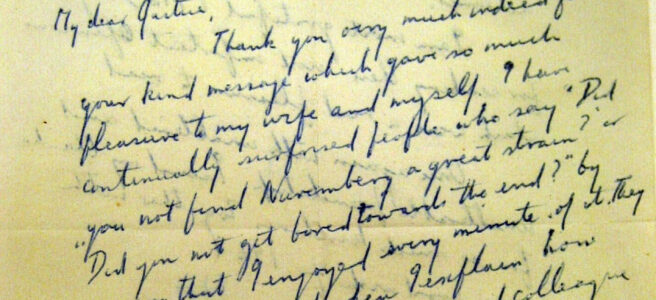 My dear
Thank you very much indeed f
your kind message which gave so much
pleasure to my wife and myself. I have
continually surprised people who say "Did
you not find Nuremberg a great strain?" or
Did you not get bored towards the end?" by
that I enjoyed every minute of it. They
I explain how
colleague